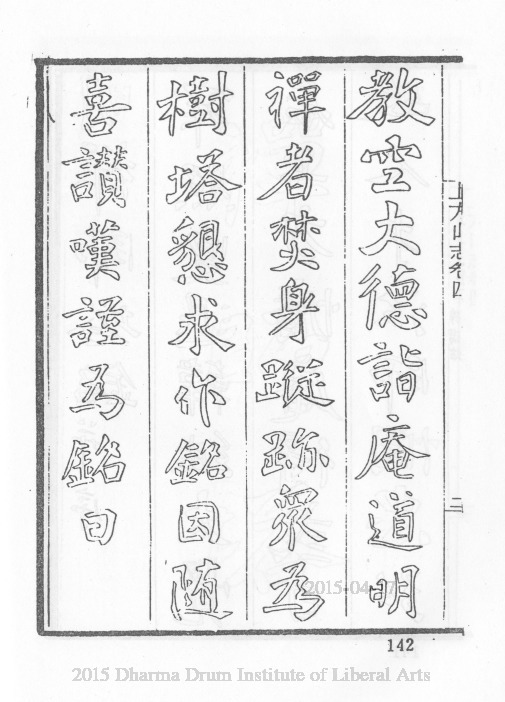 教空大德詣庵道明
禪者焚身蹤跡眾為
樹塔懇求作銘因随
喜讃嘆謹為銘曰
2015-04-
142
2015 Dharma Drum Institute of Liberal Arts